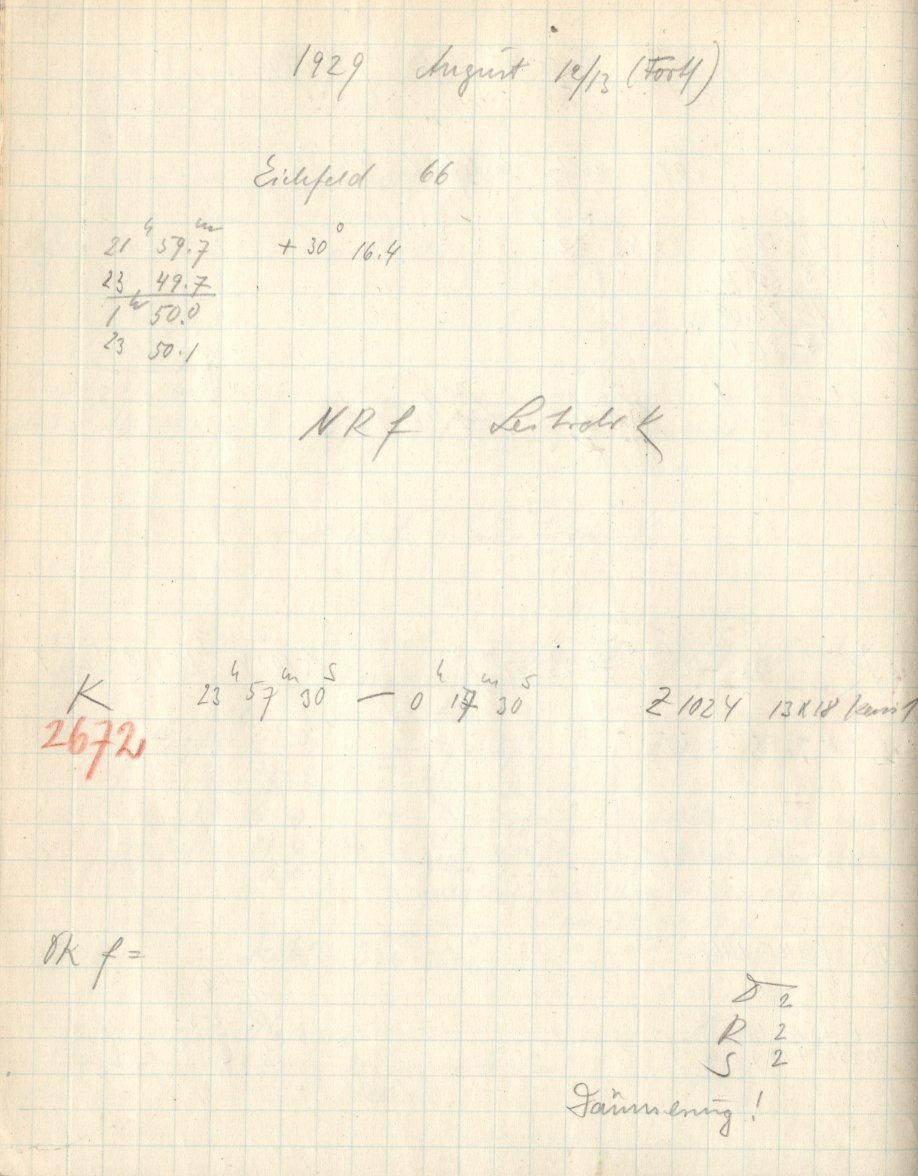 1929 August 12/13 (Forts)
Eichfeld 66
21ʰ 59.7ᵐ + 30° 16.4
23 49.7
1ʰ 50.0
23 50.1
NR f K
K 23ʰ 57ᵐ 30ˢ — 0ʰ 17ᵐ 30ˢ Z 1024 13x18
2672
f =
2
R 2
S 2
Dämmerung!